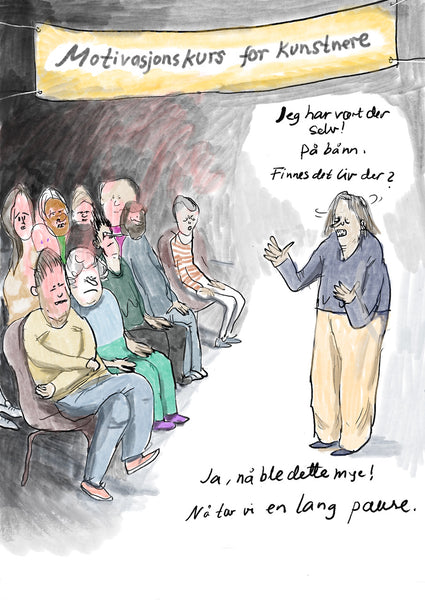 Motivasjonskurs for kunstnere
Jeg har vært der
selv!
På bånn.
Finnes det liv der?
Ja, nå ble dette mye!
Nå tar vi en lang pause.